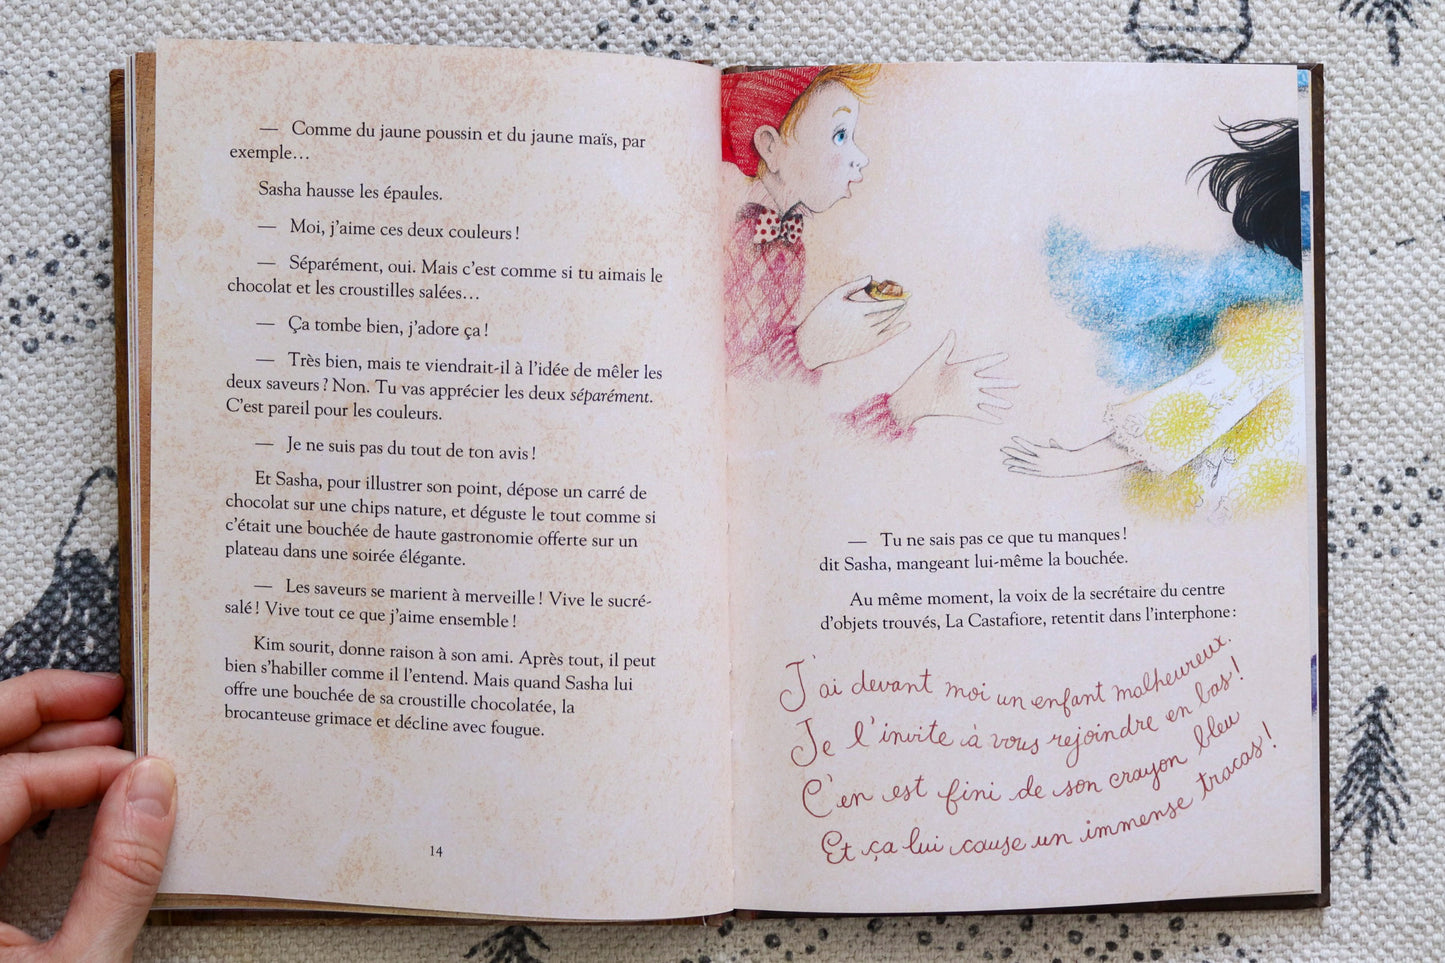 — Comme du jaune poussin et du jaune maïs, par
exemple…
Sasha hausse les épaules.
— Moi, j’aime ces deux couleurs !
— Séparément, oui. Mais c’est comme si tu aimais le
chocolat et les croustilles salées…
— Ça tombe bien, j’adore ça !
— Très bien, mais te viendrait-il à l’idée de mêler les
deux saveurs ? Non. Tu vas apprécier les deux séparément.
C’est pareil pour les couleurs.
— Je ne suis pas du tout de ton avis !
Et Sasha, pour illustrer son point, dépose un carré de
chocolat sur une chips nature, et déguste le tout comme si
c’était une bouchée de haute gastronomie offerte sur un
plateau dans une soirée élégante.
— Les saveurs se marient à merveille ! Vive le sucré-
salé ! Vive tout ce que j’aime ensemble !
Kim sourit, donne raison à son ami. Après tout, il peut
bien s’habiller comme il l’entend. Mais quand Sasha lui
offre une bouchée de sa croustille chocolatée, la
brocanteuse grimace et décline avec fougue.
14
— Tu ne sais pas ce que tu manques !
dit Sasha, mangeant lui-même la bouchée.
Au même moment, la voix de la secrétaire du centre
d’objets trouvés, La Castafiore, retentit dans l’interphone :
J’ai devant moi un enfant malheureux.
Je l’invite à vous rejoindre en bas !
C’en est fini de son crayon bleu
Et ça lui cause un immense tracas !